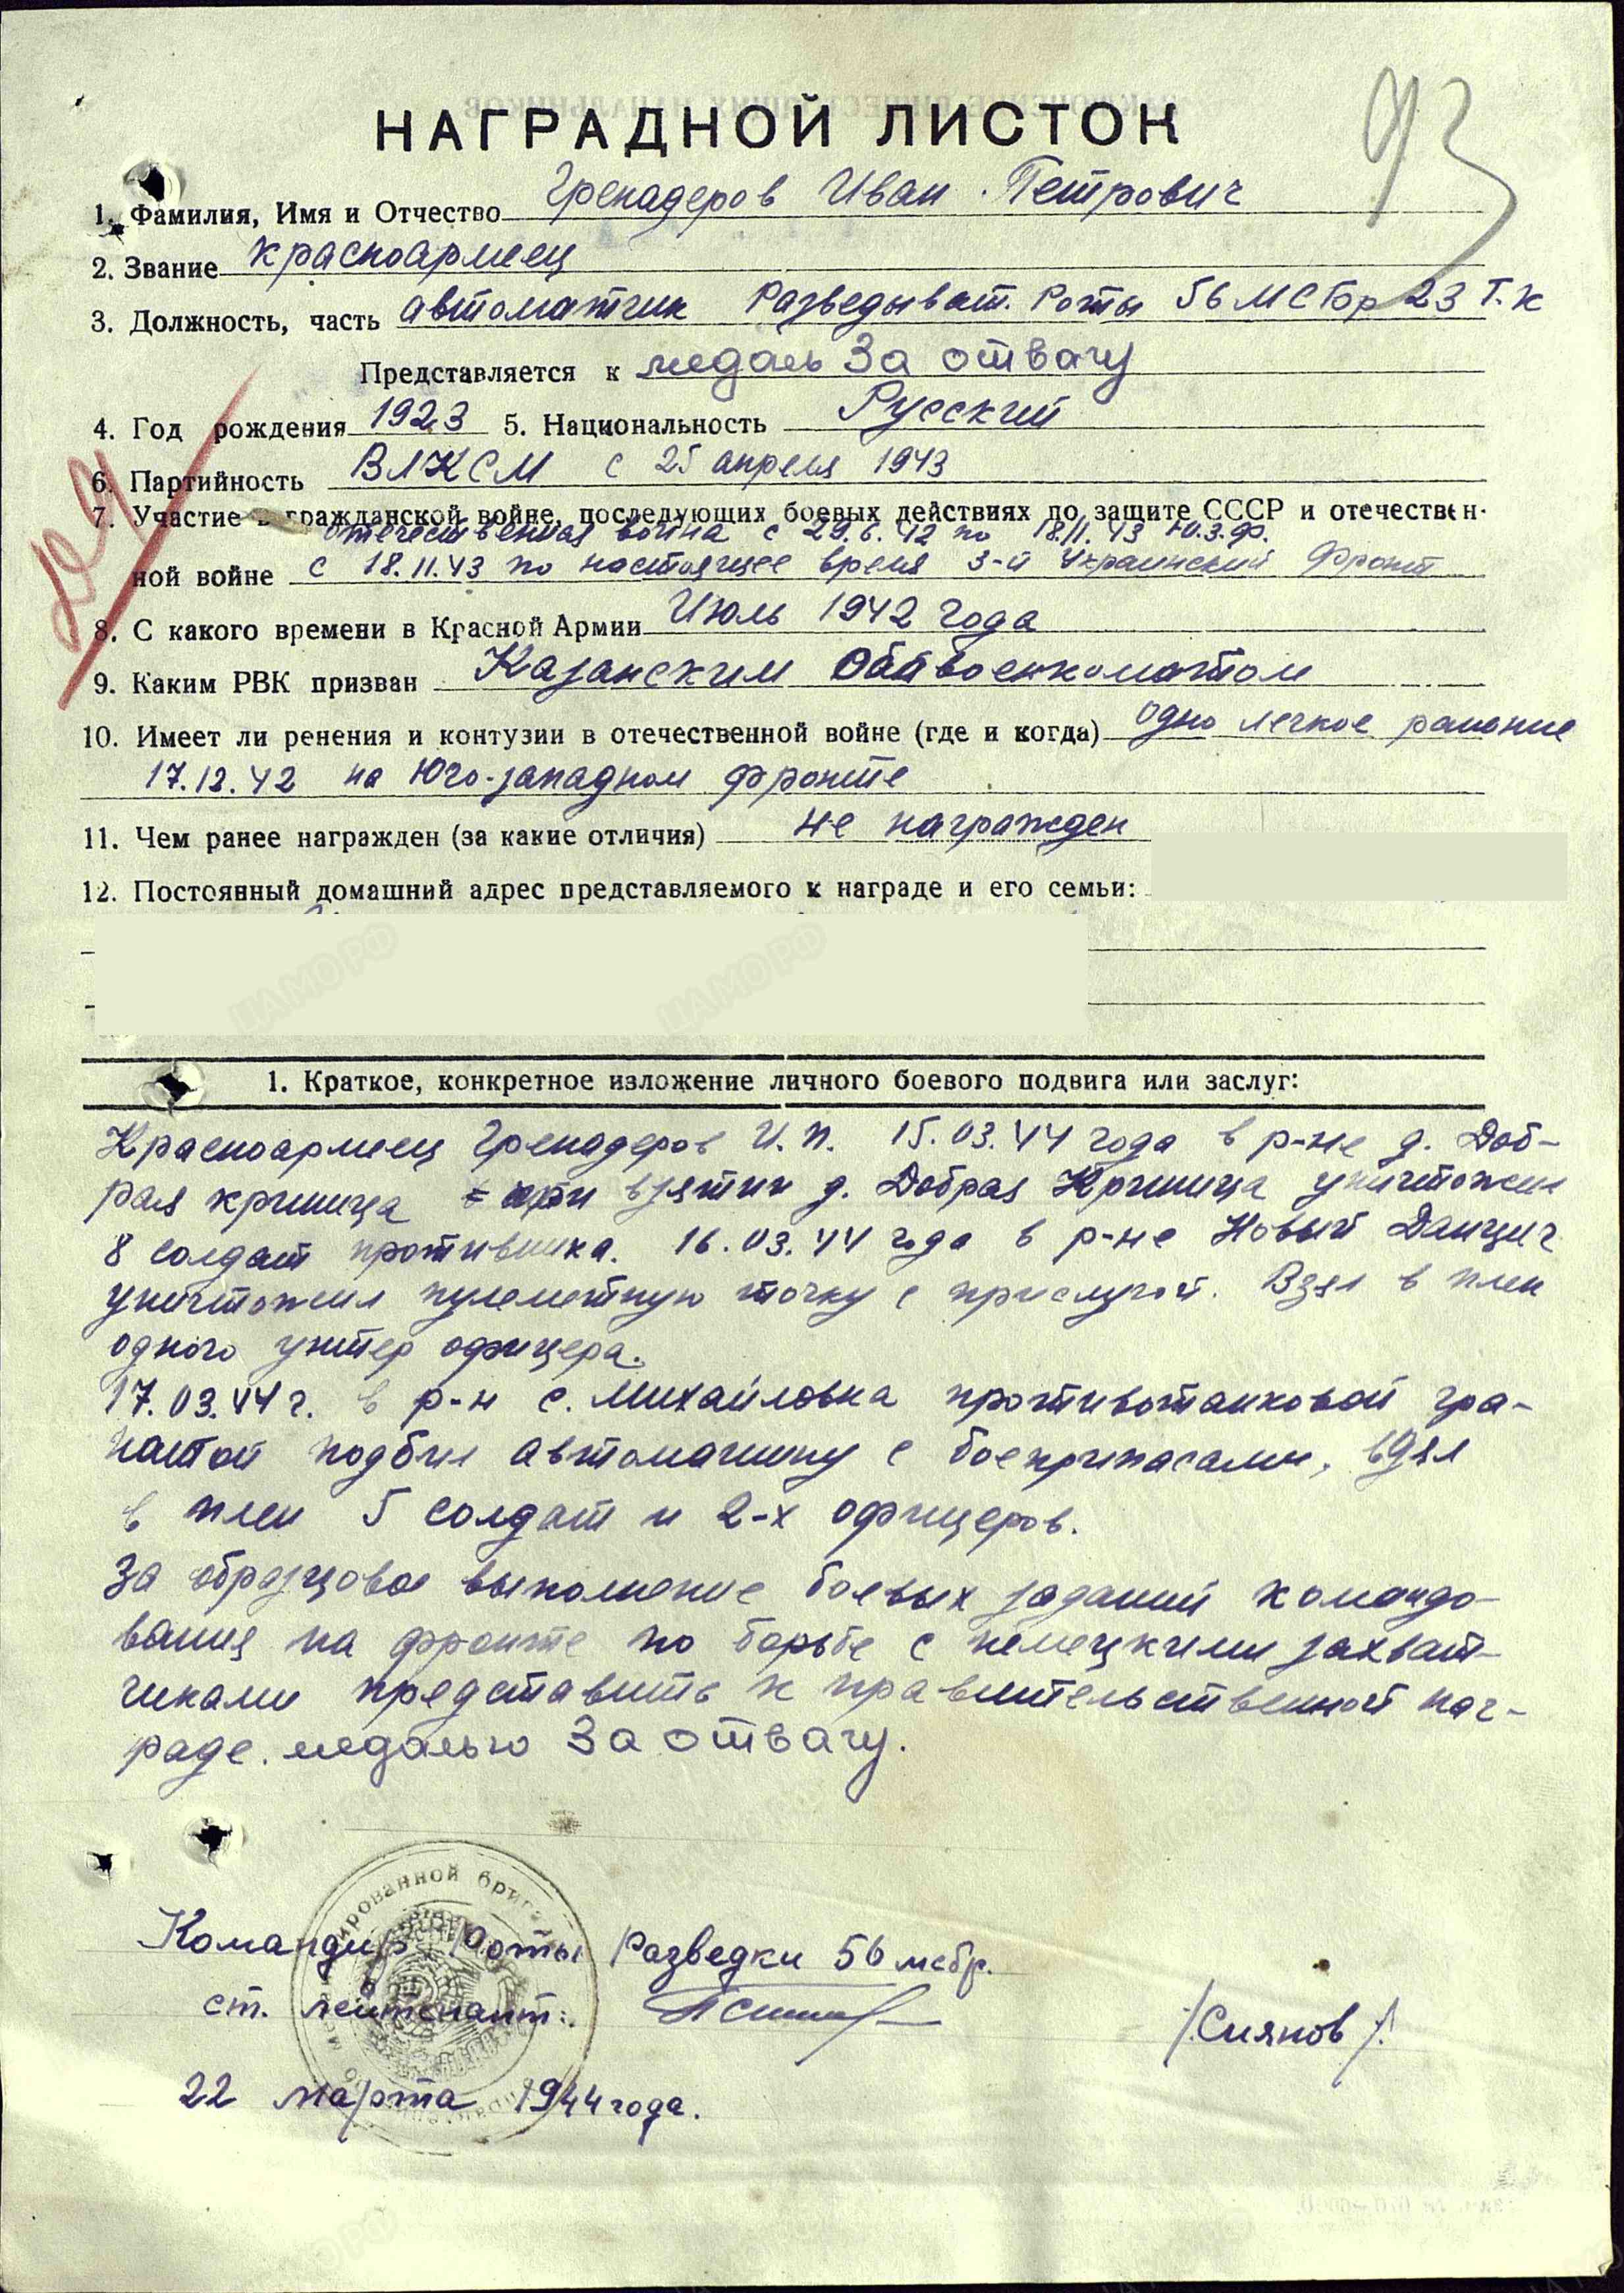 93
НАГРАДНОЙ ЛИСТОК
1. Фамилия, Имя и Отчество Гренадеров Иван Петрович
2. Звание красноармеец
3. Должность, часть автоматчик Разведыват. Роты 56 МСбр 23 Т.К
Представляется к медаль За отвагу
4. Год рождения 1923 5. Национальность Русский
6. Партийность ВЛКСМ с 25 апреля 1943
7. Участие в гражданской войне, последующих боевых действиях по защите СССР и отечествен-
отечественная война с 29.6.42 по 18.11.43 Ю.З.Ф.
ной войне с 18.11.43 по настоящее время 3-й Украинский Фронт
8. С какого времени в Красной Армии Июль 1942 года
9. Каким РВК призван Казанским Облвоенкоматом
10. Имеет ли ренения и контузии в отечественной войне (где и когда) одно легкое ранение
17.12.42 на Юго-западном фронте
11. Чем ранее награжден (за какие отличия) не награжден
12. Постоянный домашний адрес представляемого к награде и его семьи:
1. Краткое, конкретное изложение личного боевого подвига или заслуг:
Красноармеец Гренадеров И.П. 15.03.44 года в р-не д. Доб-
рая криница при взятии д. Добрая Криница уничтожил
8 солдат противника. 16.03.44 года в р-не Новый Данциг
уничтожил пулеметную точку с прислугой. Взял в плен
одного унтер офицера.
17.03.44 г. в р-н с. Михайловка противотанковой гра-
натой подбил автомашину с боеприпасами, взял
в плен 5 солдат и 2-х офицеров.
За образцовое выполнение боевых заданий командо-
вания на фронте по борьбе с немецкими захват-
чиками представить к правительственной наг-
раде. медалью За отвагу.
Командир Роты Разведки 56 мсбр.
ст. лейтенант:
/.Сиянов/.
22 марта 1944 года.